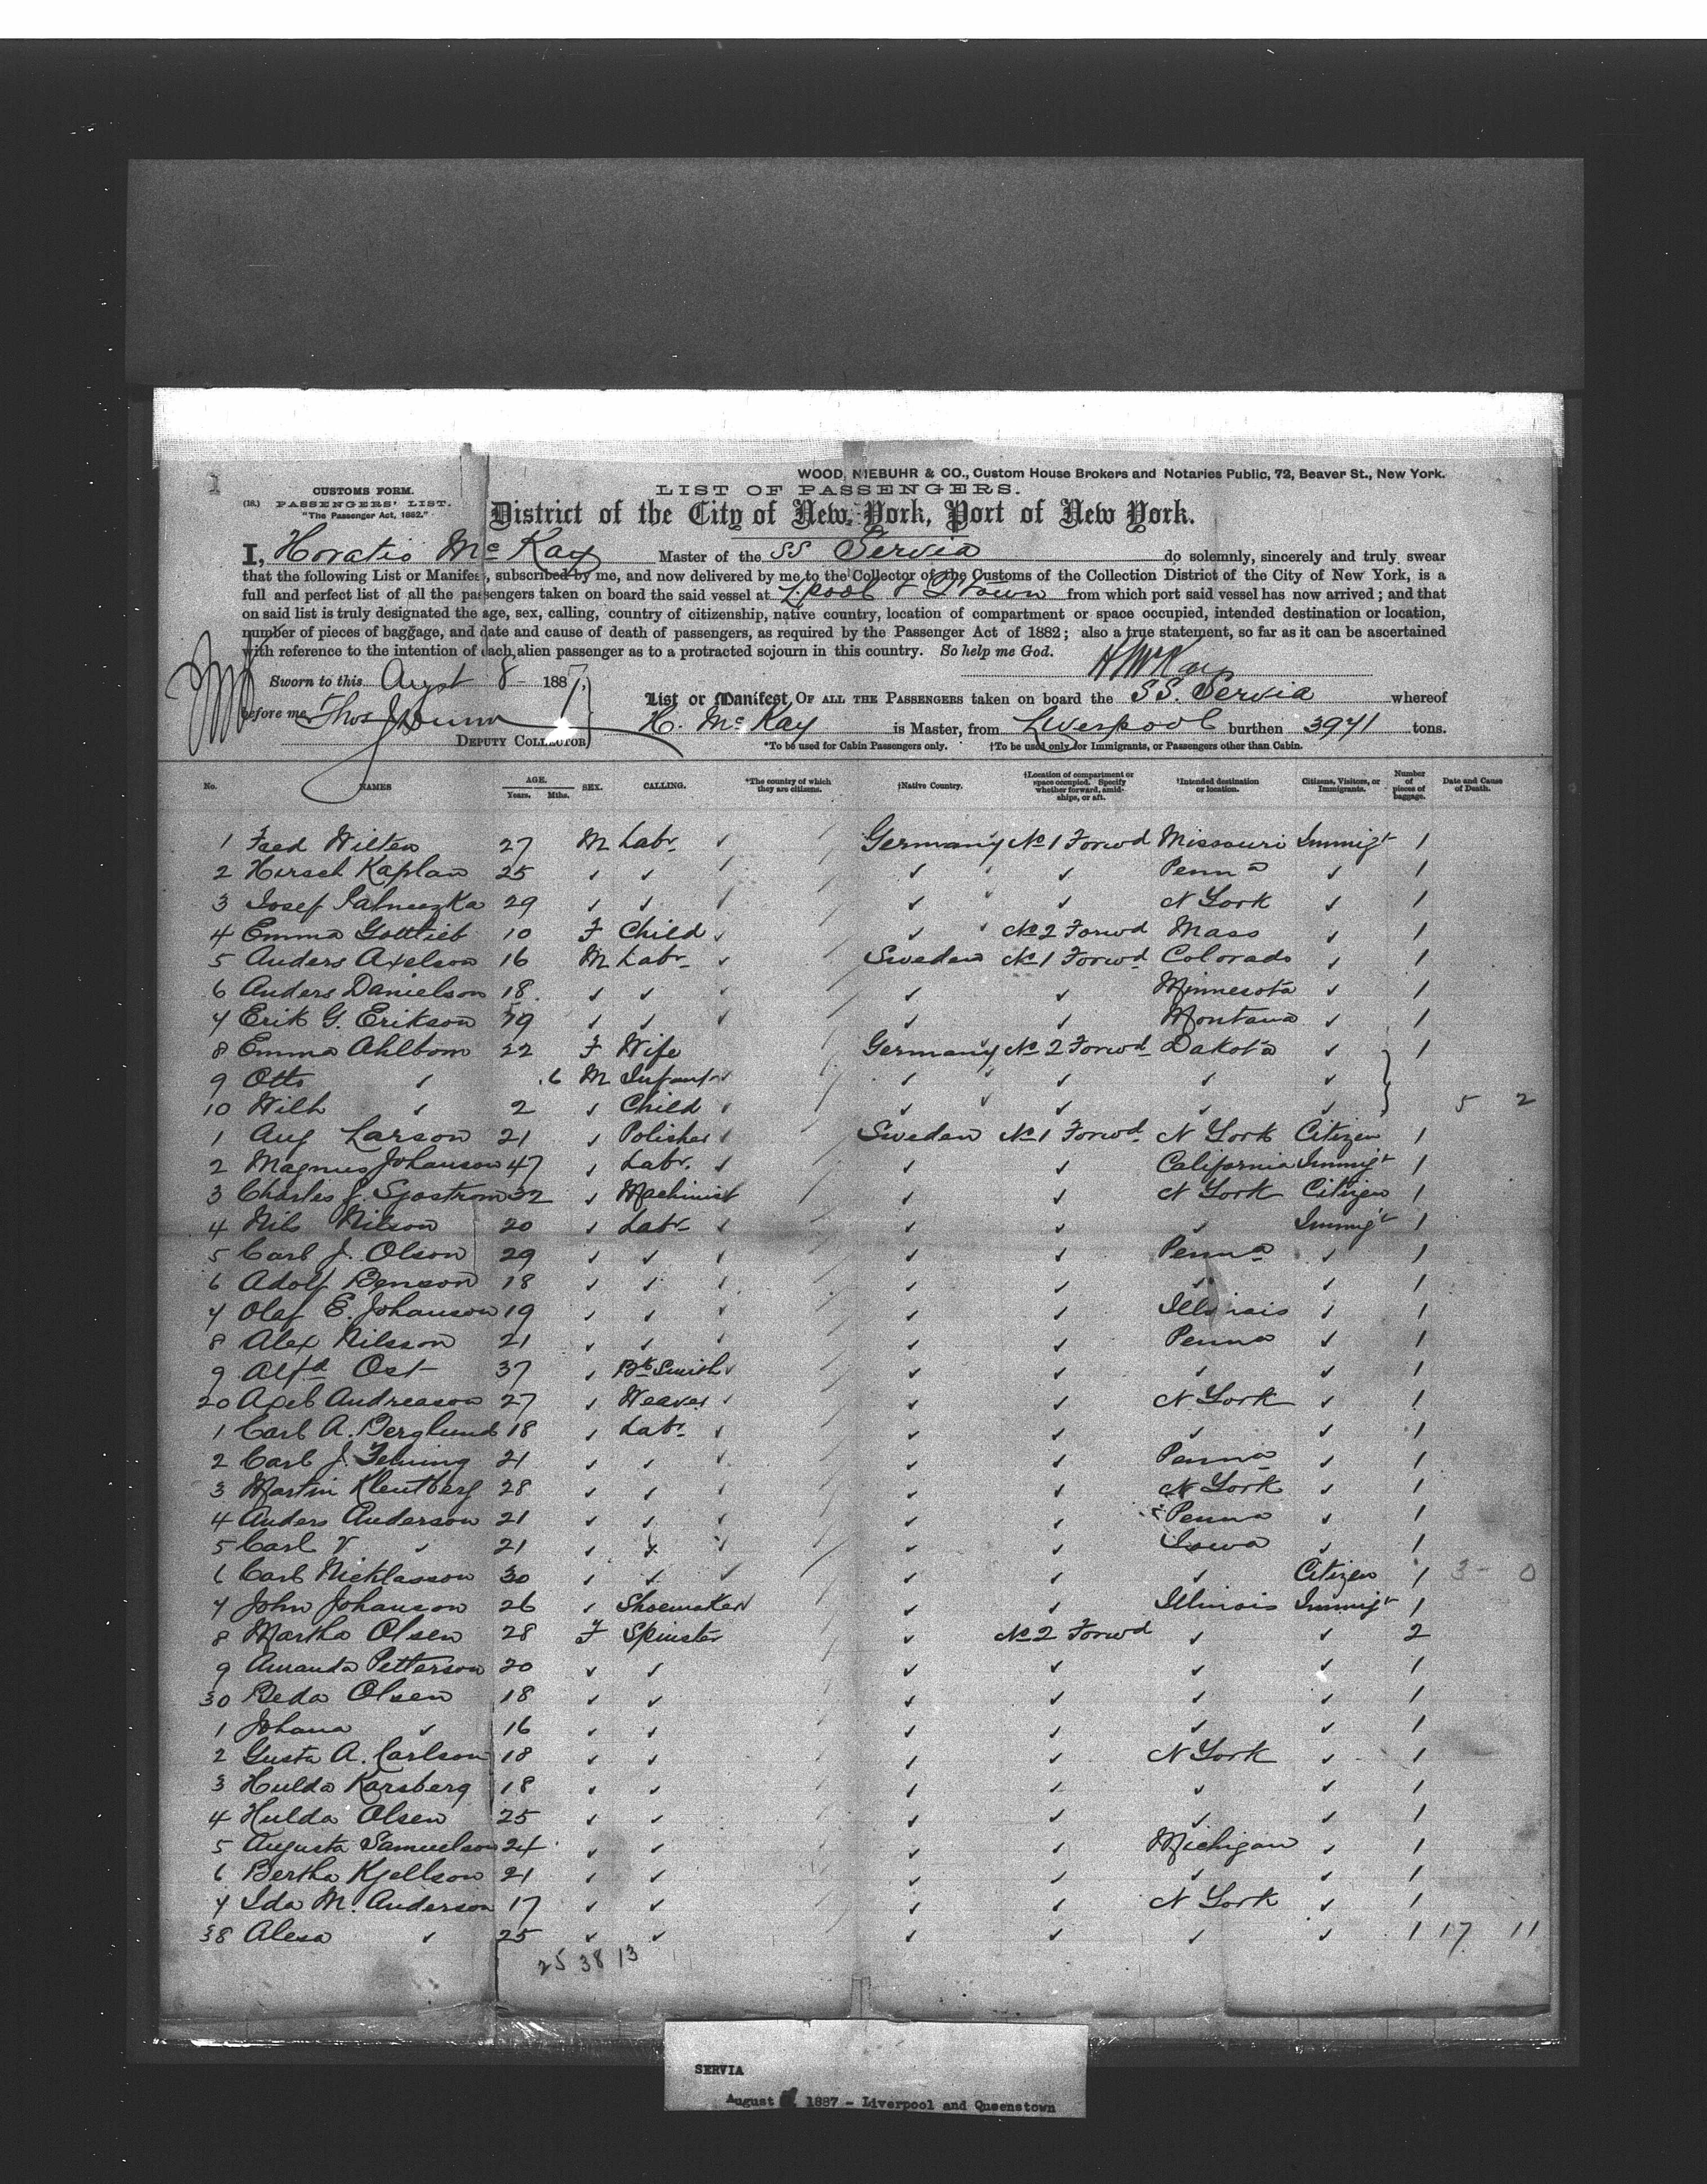 1
WOOD, NIEBUHR & CO., Custom House Brokers and Notaries Public, 72, Beaver St., New York.
CUSTOMS FORM.
LIST OF PASSENGERS.
(18.) PASSENGERS' LIST.
"The Passenger Act, 1882."
District of the City of New York, Port of New York.
I, Horatio McKay Master of the SS Servia do solemnly, sincerely and truly swear
that the following List or Manifest, subscribed by me, and now delivered by me to the Collector of the Customs of the Collection District of the City of New York, is a
full and perfect list of all the passengers taken on board the said vessel at L'pool & Q'Town from which port said vessel has now arrived; and that
on said list is truly designated the age, sex, calling, country of citizenship, native country, location of compartment or space occupied, intended destination or location,
number of pieces of baggage, and date and cause of death of passengers, as required by the Passenger Act of 1882; also a true statement, so far as it can be ascertained
with reference to the intention of each alien passenger as to a protracted sojourn in this country. So help me God.
H McKay
Sworn to this Augst 8 - 1887,
List or Manifest OF ALL THE PASSENGERS taken on board the SS. Servia whereof
before me Thos J Dunn
H. McKay is Master, from Liverpool burthen 3971 tons.
DEPUTY COLLECTOR
*To be used for Cabin Passengers only. †To be used only for Immigrants, or Passengers other than Cabin.
No. NAMES AGE. Years. Mths. SEX. CALLING. *The country of which they are citizens. †Native Country. †Location of compartment or space occupied. Specify whether forward, amidships, or aft. †Intended destination or location. Citizens, Visitors, or Immigrants. Number of pieces of baggage. Date and Cause of Death.
1 Fred Wilten 27 M Labr. ✓ Germany No 1 Forwd Missouri Immigt 1
2 Hirsch Kaplan 25 ✓ ✓ ✓ ✓ Penna ✓ 1
3 Josef 29 ✓ ✓ ✓ ✓ N York ✓ 1
4 Emma Gottlieb 10 F Child ✓ ✓ No 2 Forwd Mass ✓ 1
5 Anders Axelson 16 M Labr ✓ Sweden No 1 Forwd Colorado ✓ 1
6 Anders Danielson 18 ✓ ✓ ✓ ✓ ✓ Minnesota ✓ 1
7 Erik G. Erikson 19 ✓ ✓ ✓ ✓ ✓ Montana ✓ 1
8 Emma Ahlbom 22 F Wife Germany No 2 Forwd Dakota ✓ 1
9 Otto ✓ .6 M Infant ✓ ✓ ✓ ✓ ✓
10 Wilh ✓ 2 ✓ Child ✓ ✓ ✓ ✓ ✓ 5 2
1 Aug Larson 21 ✓ Polisher ✓ Sweden No 1 Forwd N York Citizen 1
2 Magnus Johanson 47 ✓ Labr. ✓ ✓ ✓ California Immigt 1
3 Charles J. Sjostrom 32 ✓ Machinist ✓ ✓ N York Citizen 1
4 Nils Nilson 20 ✓ Labr ✓ ✓ ✓ ✓ Immigt 1
5 Carl J. Olson 29 ✓ ✓ ✓ ✓ ✓ Penna ✓ 1
6 Adolf Benson 18 ✓ ✓ ✓ ✓ ✓ ✓ ✓ 1
7 Olaf E. Johanson 19 ✓ ✓ ✓ ✓ ✓ Illinois ✓ 1
8 Alex Nilsson 21 ✓ ✓ ✓ ✓ ✓ Penna ✓ 1
9 Alfd Ost 37 ✓ Bk Smith ✓ ✓ ✓ ✓ ✓ 1
20 Axel Andreason 27 ✓ Weaver ✓ ✓ ✓ N York ✓ 1
1 Carl A. Berglund 18 ✓ Labr ✓ ✓ ✓ ✓ ✓ 1
2 Carl J. 21 ✓ ✓ ✓ ✓ ✓ Penna ✓ 1
3 Martin Kleutberg 28 ✓ ✓ ✓ ✓ ✓ N York ✓ 1
4 Anders Anderson 21 ✓ ✓ ✓ ✓ ✓ Penna ✓ 1
5 Carl V ✓ 21 ✓ ✓ ✓ ✓ ✓ Iowa ✓ 1
6 Carl Nicklasson 30 ✓ ✓ ✓ ✓ ✓ ✓ Citizen 1 3 - 0
7 John Johanson 26 ✓ Shoemaker ✓ ✓ Illinois Immigt 1
8 Martha Olsen 28 F Spinster ✓ No 2 Forwd ✓ ✓ 2
9 Amanda Petterson 20 ✓ ✓ ✓ ✓ ✓ ✓ 1
30 Beda Olsen 18 ✓ ✓ ✓ ✓ ✓ ✓ 1
1 Johana ✓ 16 ✓ ✓ ✓ ✓ ✓ ✓ 1
2 Gusta A. Carlson 18 ✓ ✓ ✓ ✓ N York ✓ 1
3 Hulda Karsberg 18 ✓ ✓ ✓ ✓ ✓ ✓ 1
4 Hulda Olsen 25 ✓ ✓ ✓ ✓ ✓ ✓ 1
5 Augusta Samuelson 24 ✓ ✓ ✓ ✓ Michigan ✓ 1
6 Bertha Kjellson 21 ✓ ✓ ✓ ✓ ✓ ✓ 1
7 Ida M. Anderson 17 ✓ ✓ ✓ ✓ N York ✓ 1
38 Alesa ✓ 25 ✓ ✓ ✓ ✓ ✓ ✓ 1 17 11
25 38 13
SERVIA
August 1887 - Liverpool and Queenstown